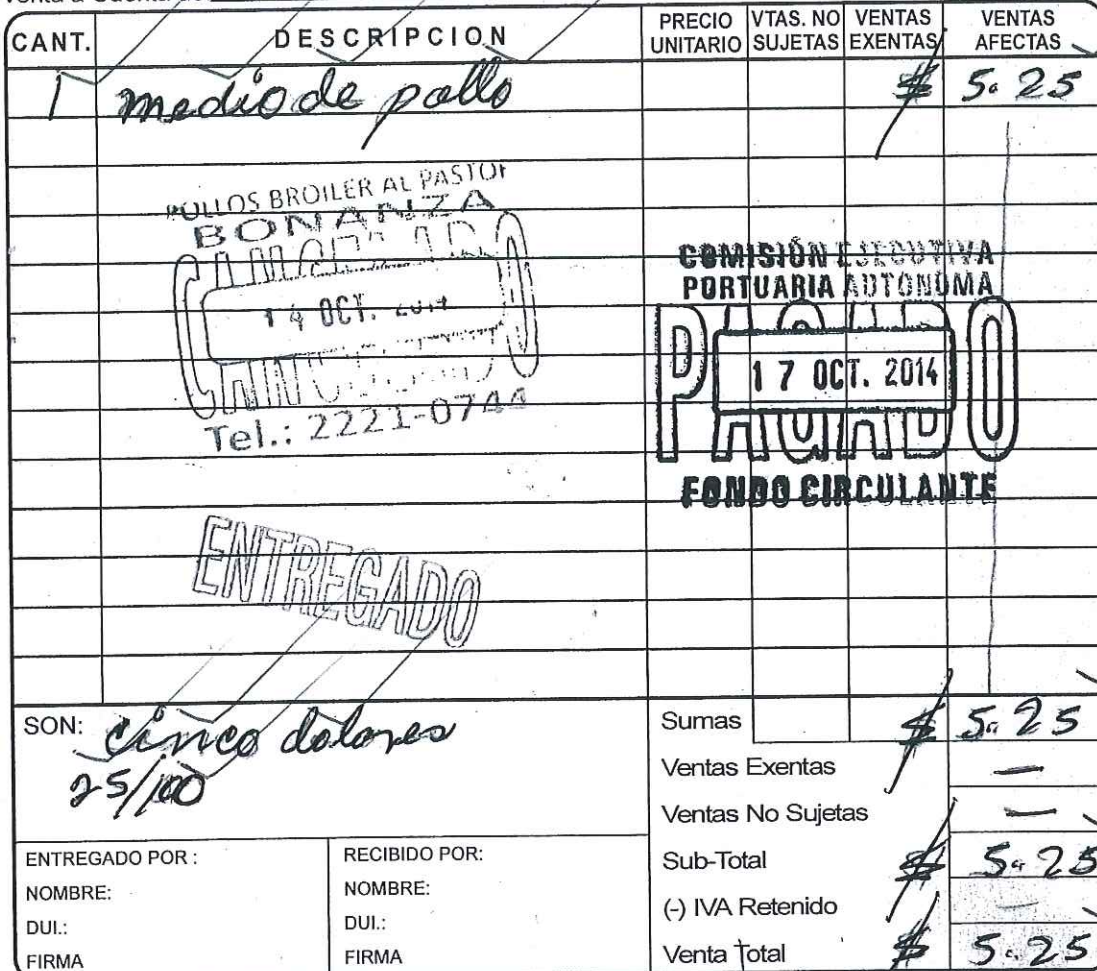 Venta a Cuenta de
CANT. DESCRIPCION PRECIO UNITARIO VTAS. NO SUJETAS VENTAS EXENTAS VENTAS AFECTAS
1 medio de pollo $ 5.25
POLLOS BROILER AL PASTOR
BONANZA
CANCELADO
14 OCT. 2014
Tel.: 2221-0744
COMISIÓN EJECUTIVA
PORTUARIA AUTONOMA
PAGADO
17 OCT. 2014
FONDO CIRCULANTE
ENTREGADO
SON: cinco dolares
25/100
Sumas $ 5.25
Ventas Exentas —
Ventas No Sujetas —
Sub-Total $ 5.25
(-) IVA Retenido —
Venta Total $ 5.25
ENTREGADO POR :
NOMBRE:
DUI.:
FIRMA
RECIBIDO POR:
NOMBRE:
DUI.:
FIRMA